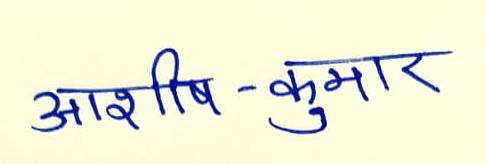 आशीष - कुमार